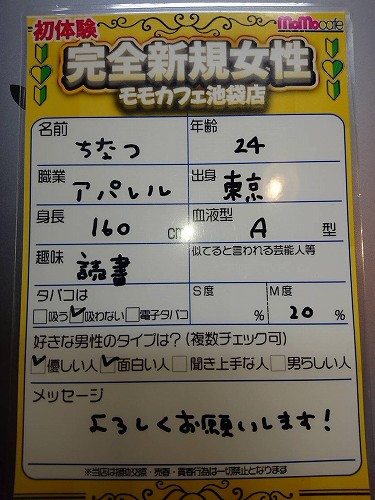 初体験
MoMocafe
完全新規女性
モモカフェ池袋店
名前 ちなつ
年齢 24
職業 アパレル
出身 東京
身長 160 cm
血液型 A 型
趣味 読書
似てると言われる芸能人等
タバコは
吸う 吸わない 電子タバコ
S度 %
M度 20 %
好きな男性のタイプは?(複数チェック可)
優しい人 面白い人 聞き上手な人 男らしい人
メッセージ
よろしくお願いします!
※当店は援助交際・売春・買春行為は一切禁止となります